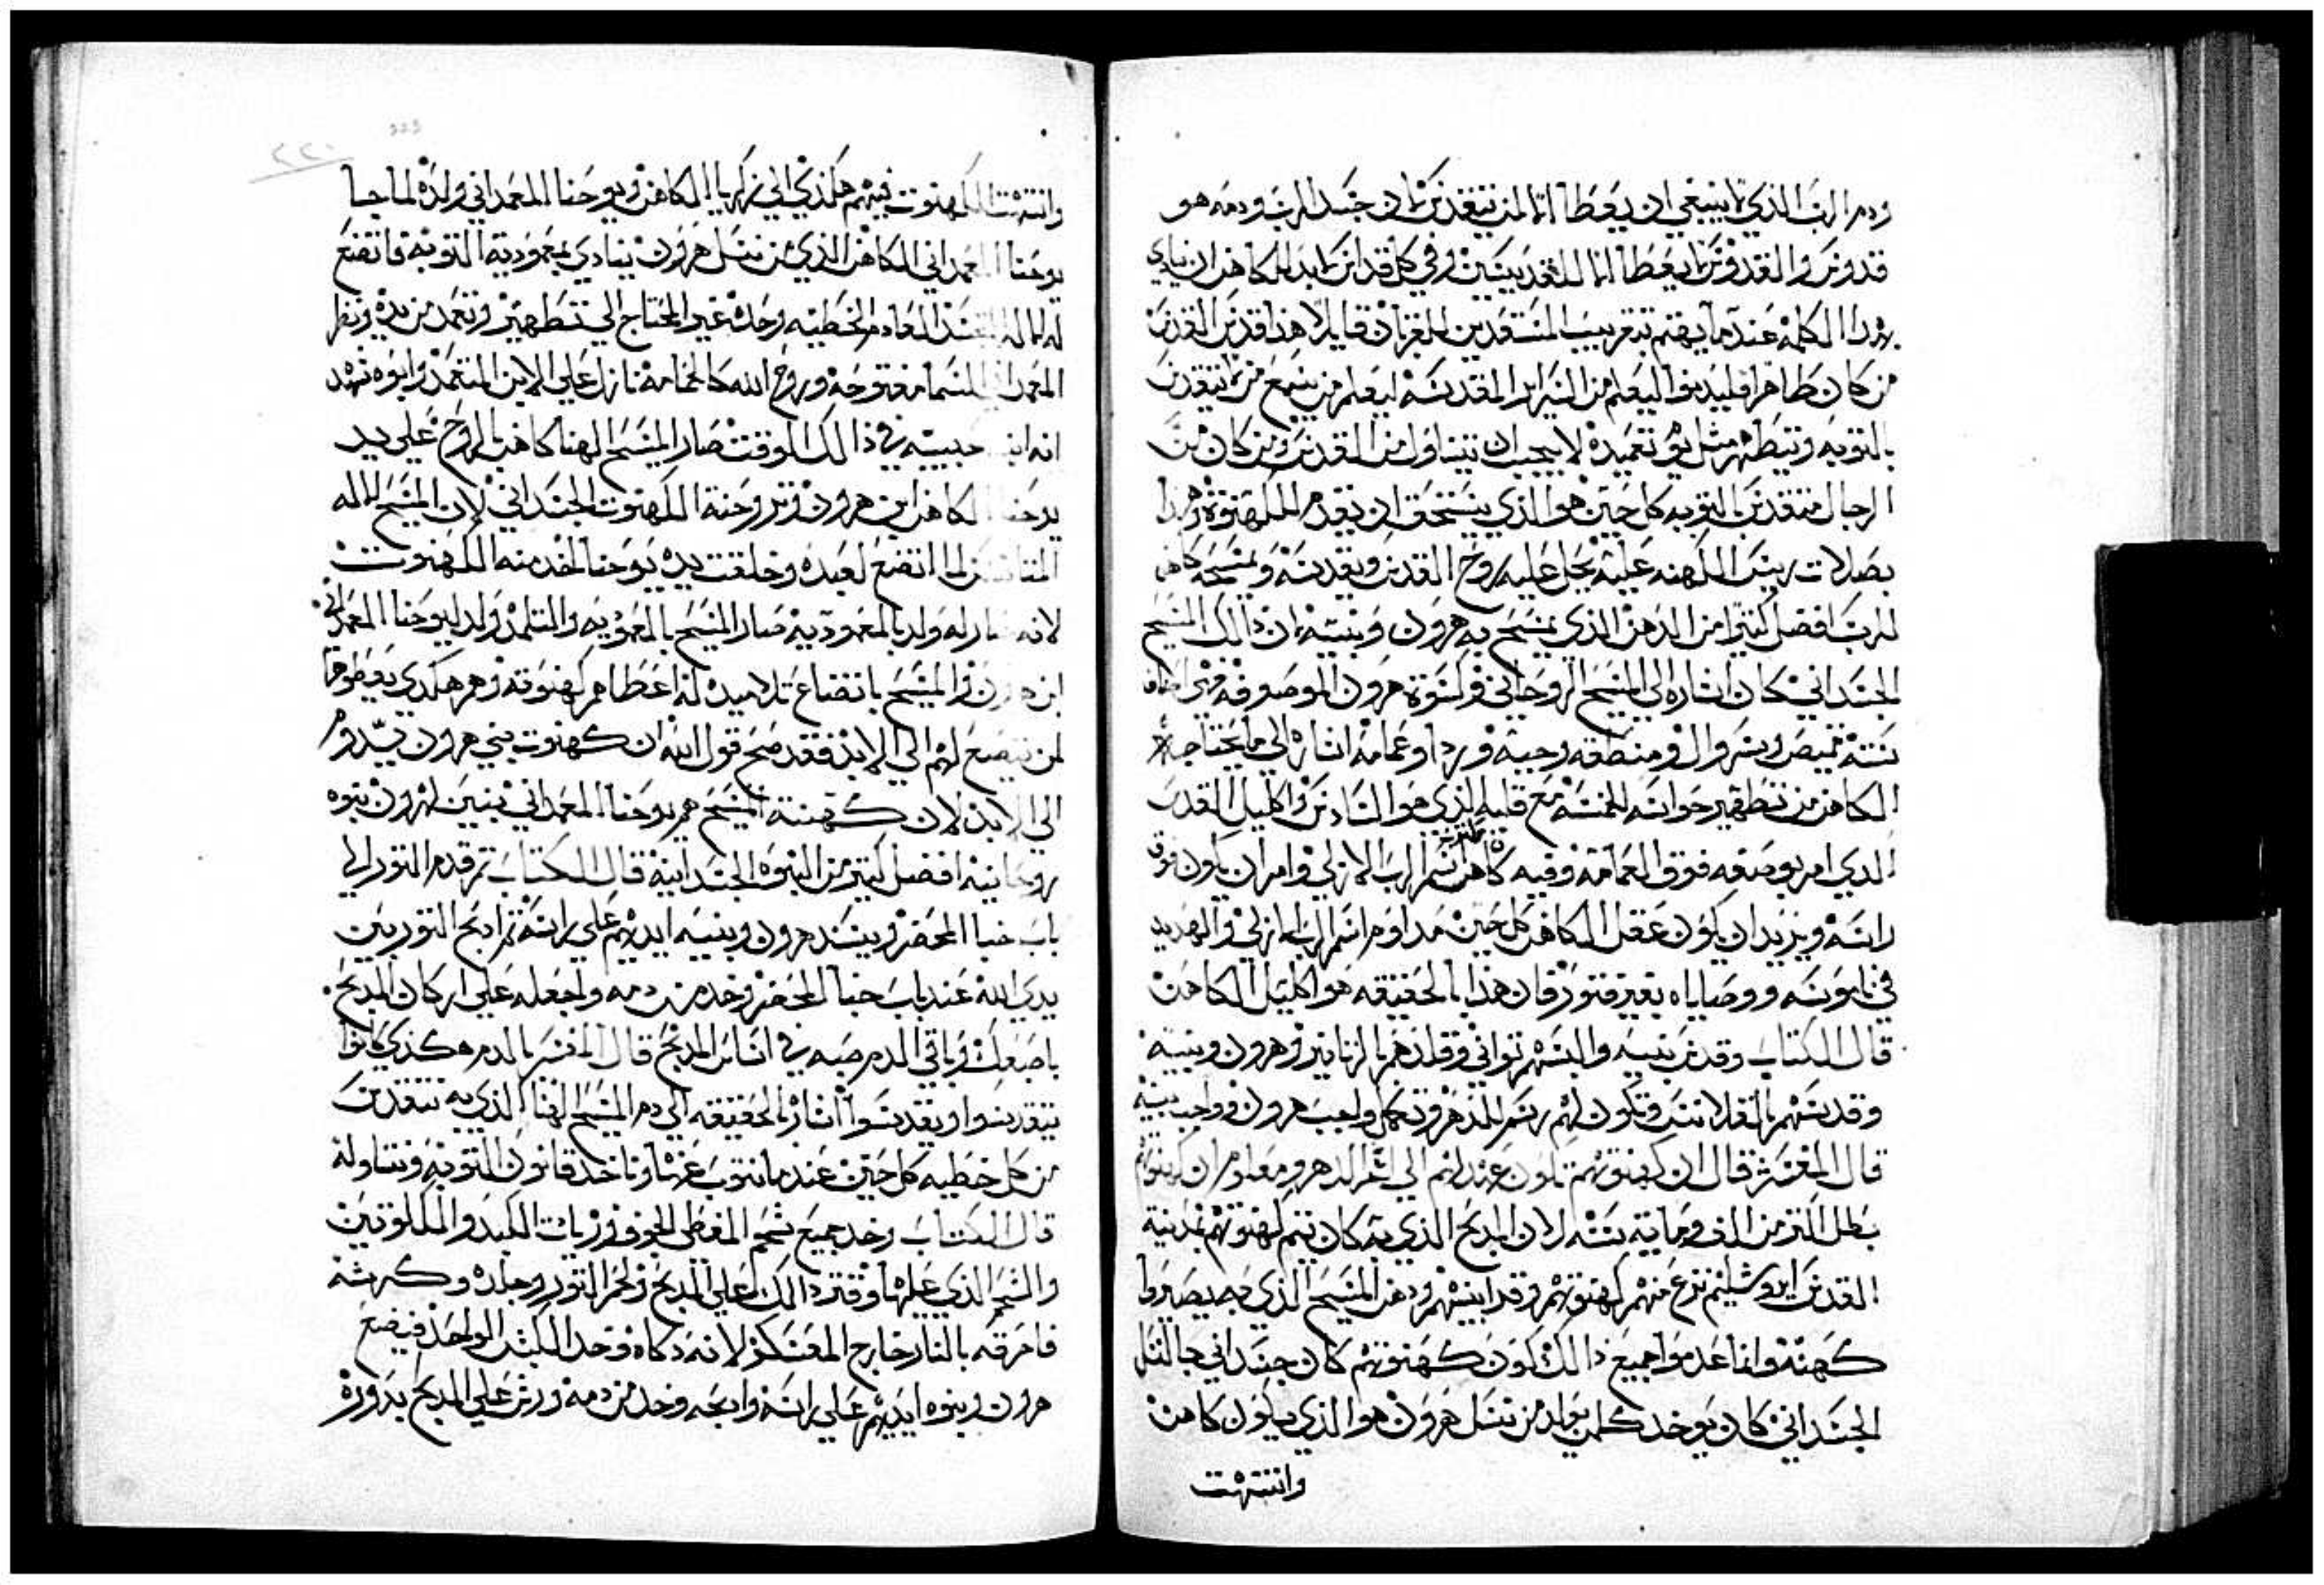 ودم الرب الذي لا ينبغي ان يعطا الا لمن يتقدس لان جسد الرب ودمه هو
قدوس والقدوس لا يعطا الا للقديسين وفي كل قداس لابد للكاهن ان ينادي
بهذا الكلمه عندما يهتم بتقريب المستعدين للقربان قايلا هذا قدس القدس
من كان طاهرا فليدنوا ليعلم من السراير المقدسه ليعلم من يسمع من لا يتقدس
بالتوبه ويتطهر مثل يوم تعميده لا يجب ان يتناول من القدس ومن كان من
الرجال متقدس بالتوبه كل حين هو الذي يستحق ان يقدم للكهنوة وهذا
بصلات ريس الكهنه عليه يحل عليه روح القدس ويقدسه ويمسحه كاهن
للرب افضل كتيرا من الدهن الذي يمسح به هرون وبنيه لان ذالك المسيح
الجسداني كان اشاره الي المسيح الروحاني وكسوة هرون الموصوفه فهي اصناف
سته قميص وسروال ومنطقه وجبه وردا وعمامه اشاره الي ما يحتاج اليه
الكاهن من تطهير حواسه الخمسه مع قلبه الذي هو السادس واكليل القدس
الدي امر بوضعه فوق العمامه وفيه كاهن اسم الرب الازلي وامر ان يكون فوق
راسه ويريد ان يكون عقل الكاهن كل حين مداوم اسم الرب الازلي والهديد
في ناموسه ووصاياه بغير فتور فان هذا بالحقيقه هو اكليل الكاهن
قال الكتاب وقدس بنيه والبسهم تواني وقلدهم بالزنانير وهرون وبنيه
وقدسهم بالقلانس وتكون لهم رسم للدهر وتكمل واجب هرون وواجب بنيه
قال المفسر قال ان كهنوتهم تكون عندهم الي اخر الدهر ومعلوم ان كهنوتهم
بطل اكتر من الف ومايه سنه لان المدبح الذي به كان تتم كهنوتهم بمدينة
القدس ايروشليم نزع منهم كهنوتهم وقدايسهم ودهن المسيح الذي به يصيروا
كهنة وانما عدموا جميع ذالك لكون كهنوتهم كان جسداني بالنسل
الجسداني كان يوخد كلمن يولد من نسل هرون هو الذي يكون كاهن
وانتهت
وانتهت الكهنوت فيهم هكذي الي زكريا الكاهن ويوحنا المعمداني ولده لما جا
يوحنا المعمداني الكاهن الذي من نسل هرون ينادي بمعمودية التوبه فاتضع
له الاله المتجسد العادم الخطيه وحده غير المحتاج الي تطهير وتعمد من يده ونظر
المعمداني السما مفتوحه وروح الله كالحمامه نازل علي الابن المتعمد وابوه شهد
انه ابنه حبيبه في ذالك الوقت صار المسيح الهنا كاهن بالروح علي يد
يوحنا الكاهن ابن هرون وتروحنة الكهنوت الجسداني لان المسيح الاله
المتانس لما اتضع لعبده وخلقت يده يوحنا اخد منه الكهنوت
لانه صار له ولد بالمعموديه صار المسيح بالمعموديه والتلمد ولد ليوحنا المعمداني
ابن هرون والمسيح باتضاع تلاميده له اعطاهم كهنوته وهم هكدي يعطوها
لمن يتضع لهم الي الابد فقد صح قول الله ان كهنوت بني هرون تدوم
الي الابد لان كهنته المسيح هم يوحنا المعمداني بنين لهرون بنوه
روحانيه افضل كتير من البنوه الجسدانيه قال الكتاب تم قدم التور الي
باب خبا المحضر ويسند هرون وبنيه ايديهم علي راسه تم ادبح التور بين
يدي الله عند باب خبا المحضر وخد من دمه واجعله علي اركان المدبح
باصبعك وباقي الدم صبه في اساس المدبح قال المفسر بالدم هكذي كانوا
يتقدسوا ويقدسوا اشاره بالحقيقه الي دم المسيح الهنا الذي به نتقدس
من كل خطيه كل حين عندما نتوب عنها وناخد قانون التوبه ونتناوله
قال الكتاب وخد جميع شحم المغطي الجوف وزيادت الكبد والكلوتين
والشحم الذي عليها وقتر ذالك علي المدبح ولحم التور وجلده وكرشه
فاحرقه بالنار خارج المعسكر لانه دكاه وخد الكبش الواحد فيضع
هرون وبنوه ايديهم علي راسه وادبحه وخد من دمه ورش علي المدبح بدوره